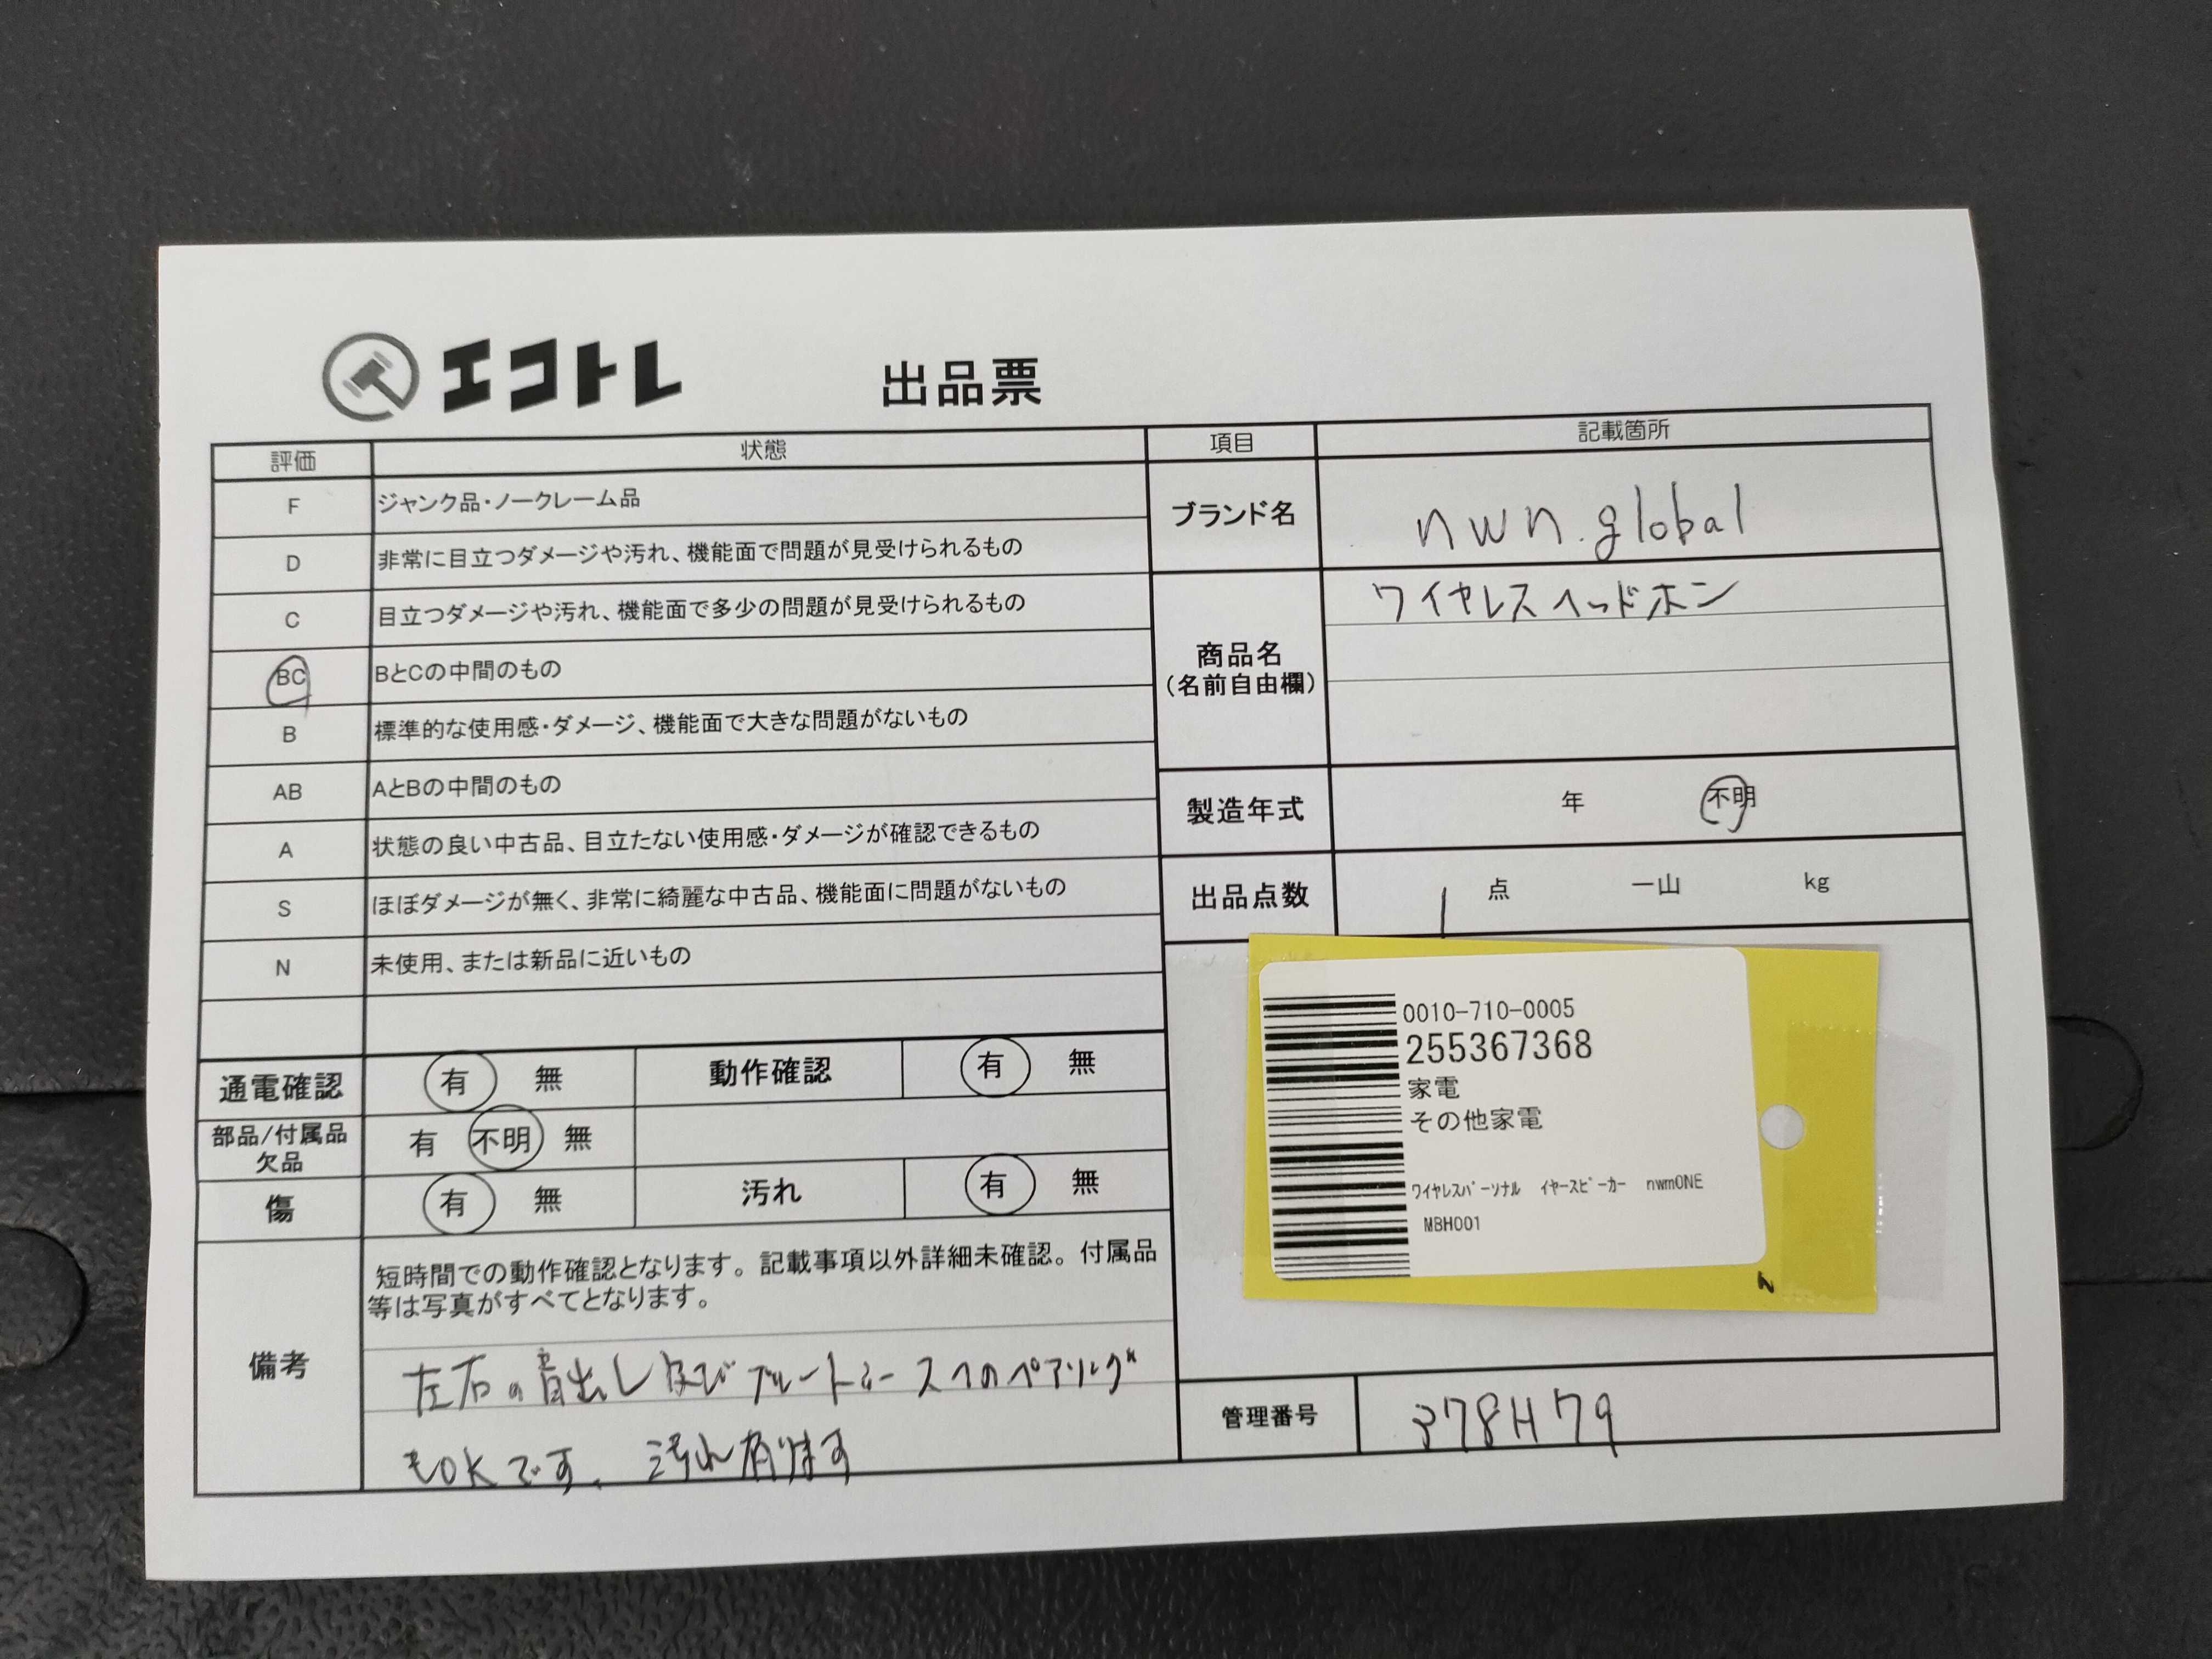 エコトレ 出品票
評価 状態 項目 記載箇所
F ジャンク品・ノークレーム品
D 非常に目立つダメージや汚れ、機能面で問題が見受けられるもの
C 目立つダメージや汚れ、機能面で多少の問題が見受けられるもの
BC BとCの中間のもの
B 標準的な使用感・ダメージ、機能面で大きな問題がないもの
AB AとBの中間のもの
A 状態の良い中古品、目立たない使用感・ダメージが確認できるもの
S ほぼダメージが無く、非常に綺麗な中古品、機能面に問題がないもの
N 未使用、または新品に近いもの
通電確認 有 無 動作確認 有 無
部品/付属品
欠品 有 不明 無
傷 有 無 汚れ 有 無
備考
短時間での動作確認となります。記載事項以外詳細未確認。付属品
等は写真がすべてとなります。
左右の音出し及びブルートゥースへのペアリング
もOKです。汚れ有ります
ブランド名 nwn.global
商品名
(名前自由欄)
ワイヤレスヘッドホン
製造年式 年 不明
出品点数 1 点 一山 kg
0010-710-0005
255367368
家電
その他家電
ワイヤレスパーソナル イヤースピーカー nwmONE
MBH001
管理番号 378H79